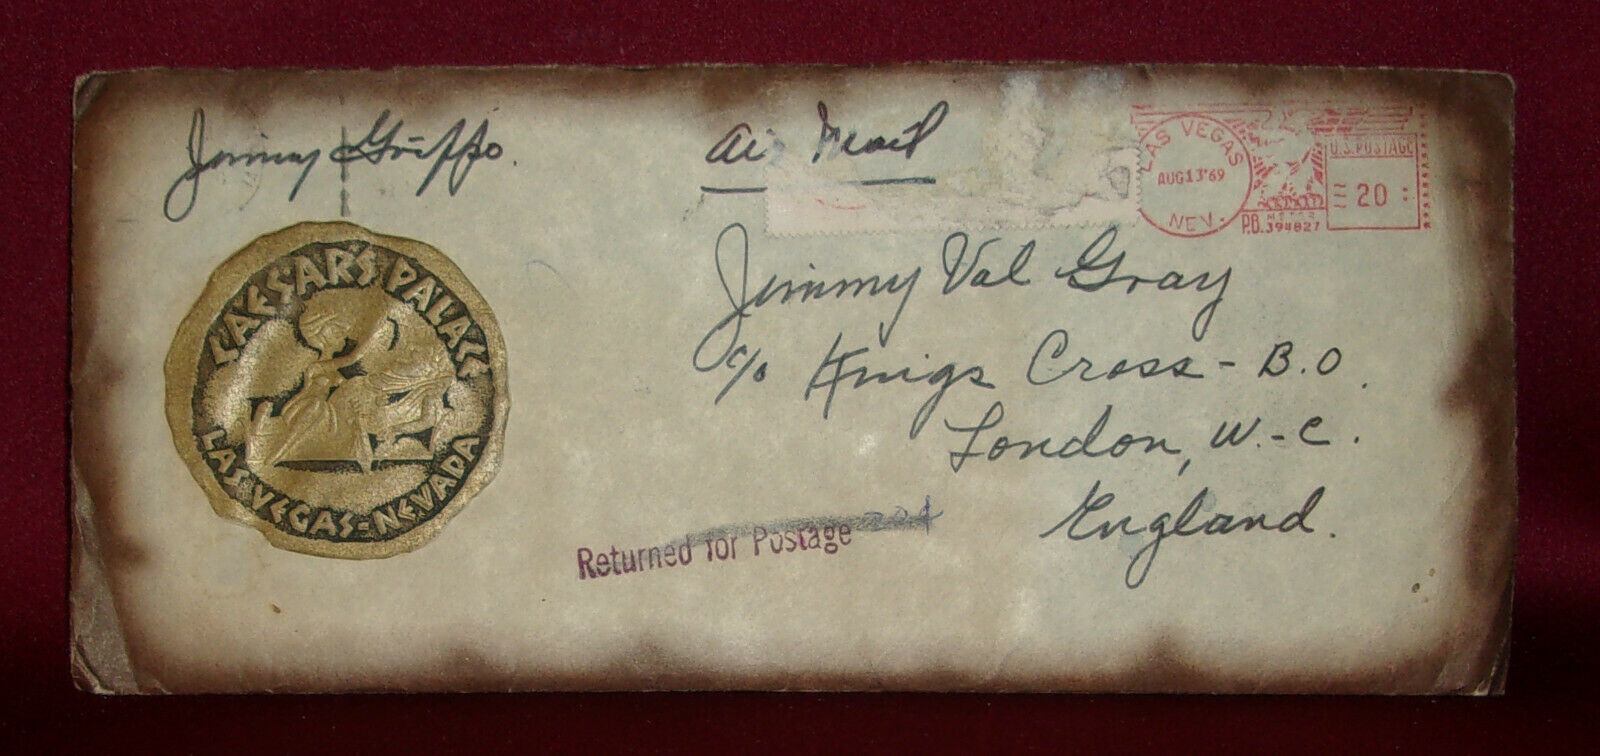 Jimmy Grippo.
Air Mail
LAS VEGAS
AUG 13 '69
NEV.
U.S. POSTAGE
20
P.B. METER
394827
CAESARS PALACE
LAS VEGAS-NEVADA
Jimmy Val Gray
c/o Kings Cross - B.O.
London, W.-C.
England.
Returned for Postage